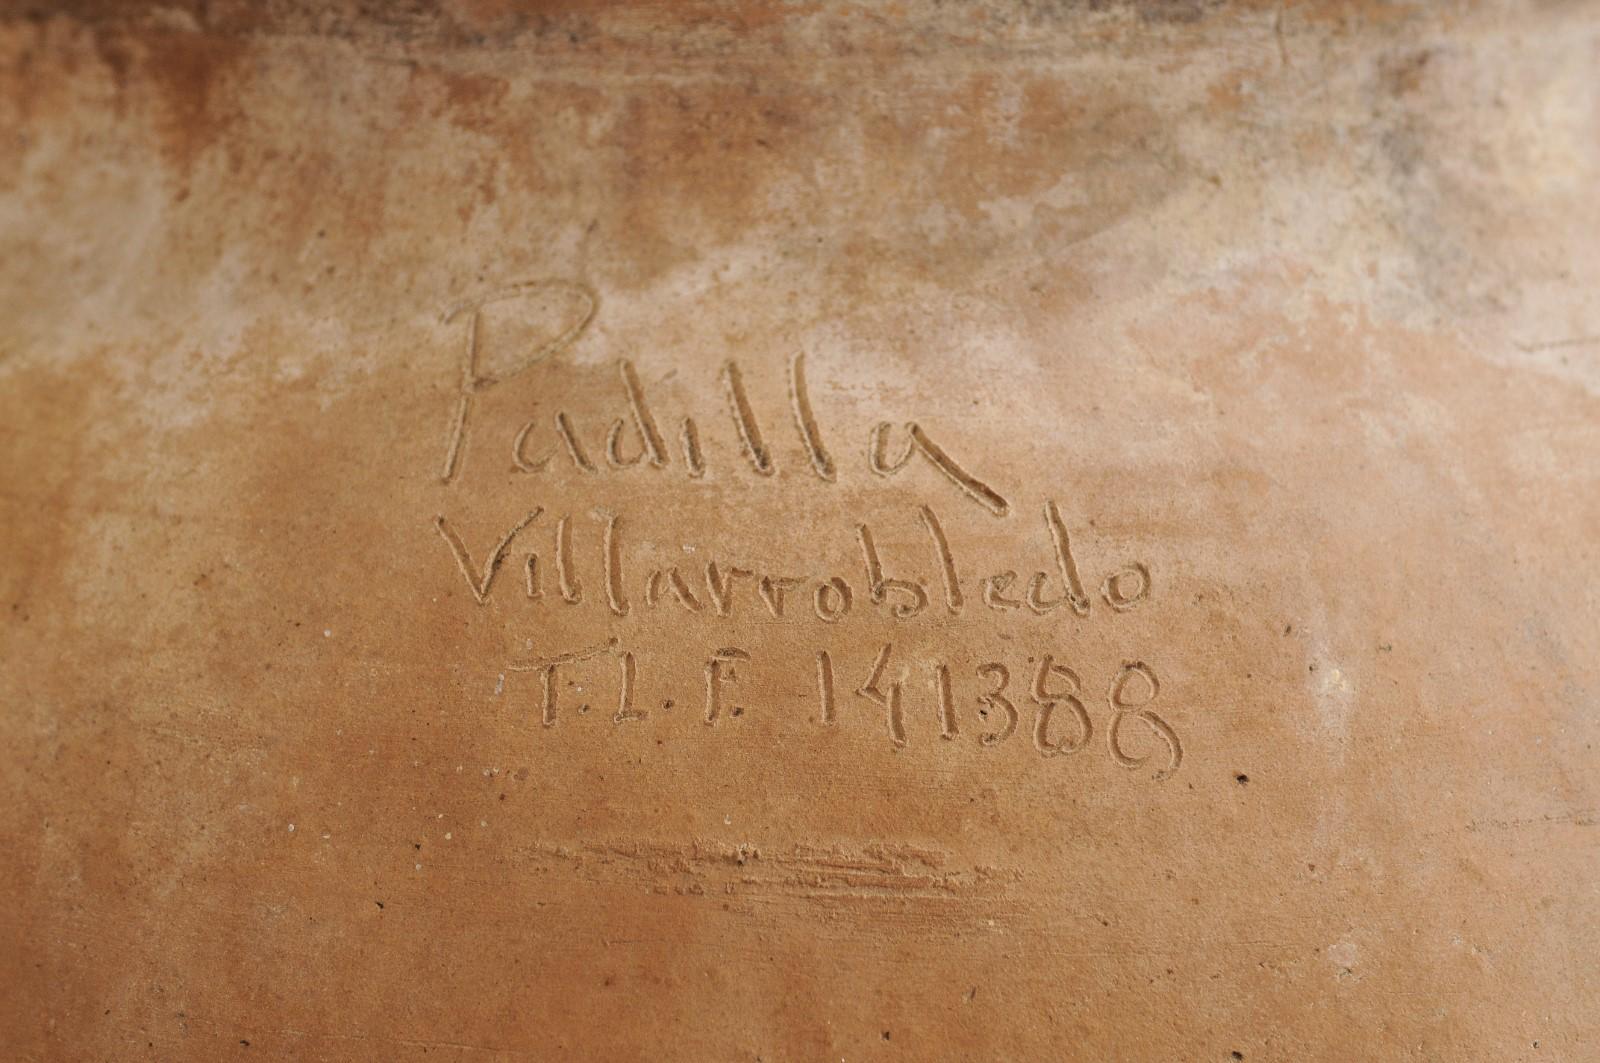 Padilla
Villarrobledo
T.L.F. 141388